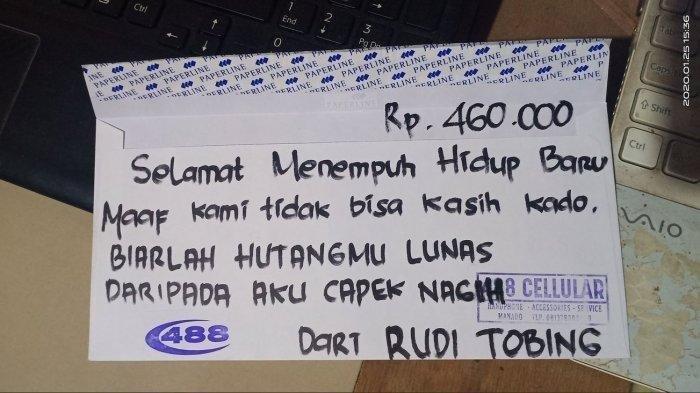 Ctrl
1
End
2
3
0
Pg Dn
2020.01.25 15:36
PAPERLINE PAPERLINE PAPERLINE PAPERLINE
Rp. 460.000
Selamat Menempuh Hidup Baru
Maaf kami tidak bisa kasih kado.
BIARLAH HUTANGMU LUNAS
DARIPADA AKU CAPEK NAGIH
488 CELLULAR
HANDPHONE - ACCESSORIES - SERVICE
MANADO
488
Dari RUDI TOBING
Caps
Shift
Ctrl
VAIO